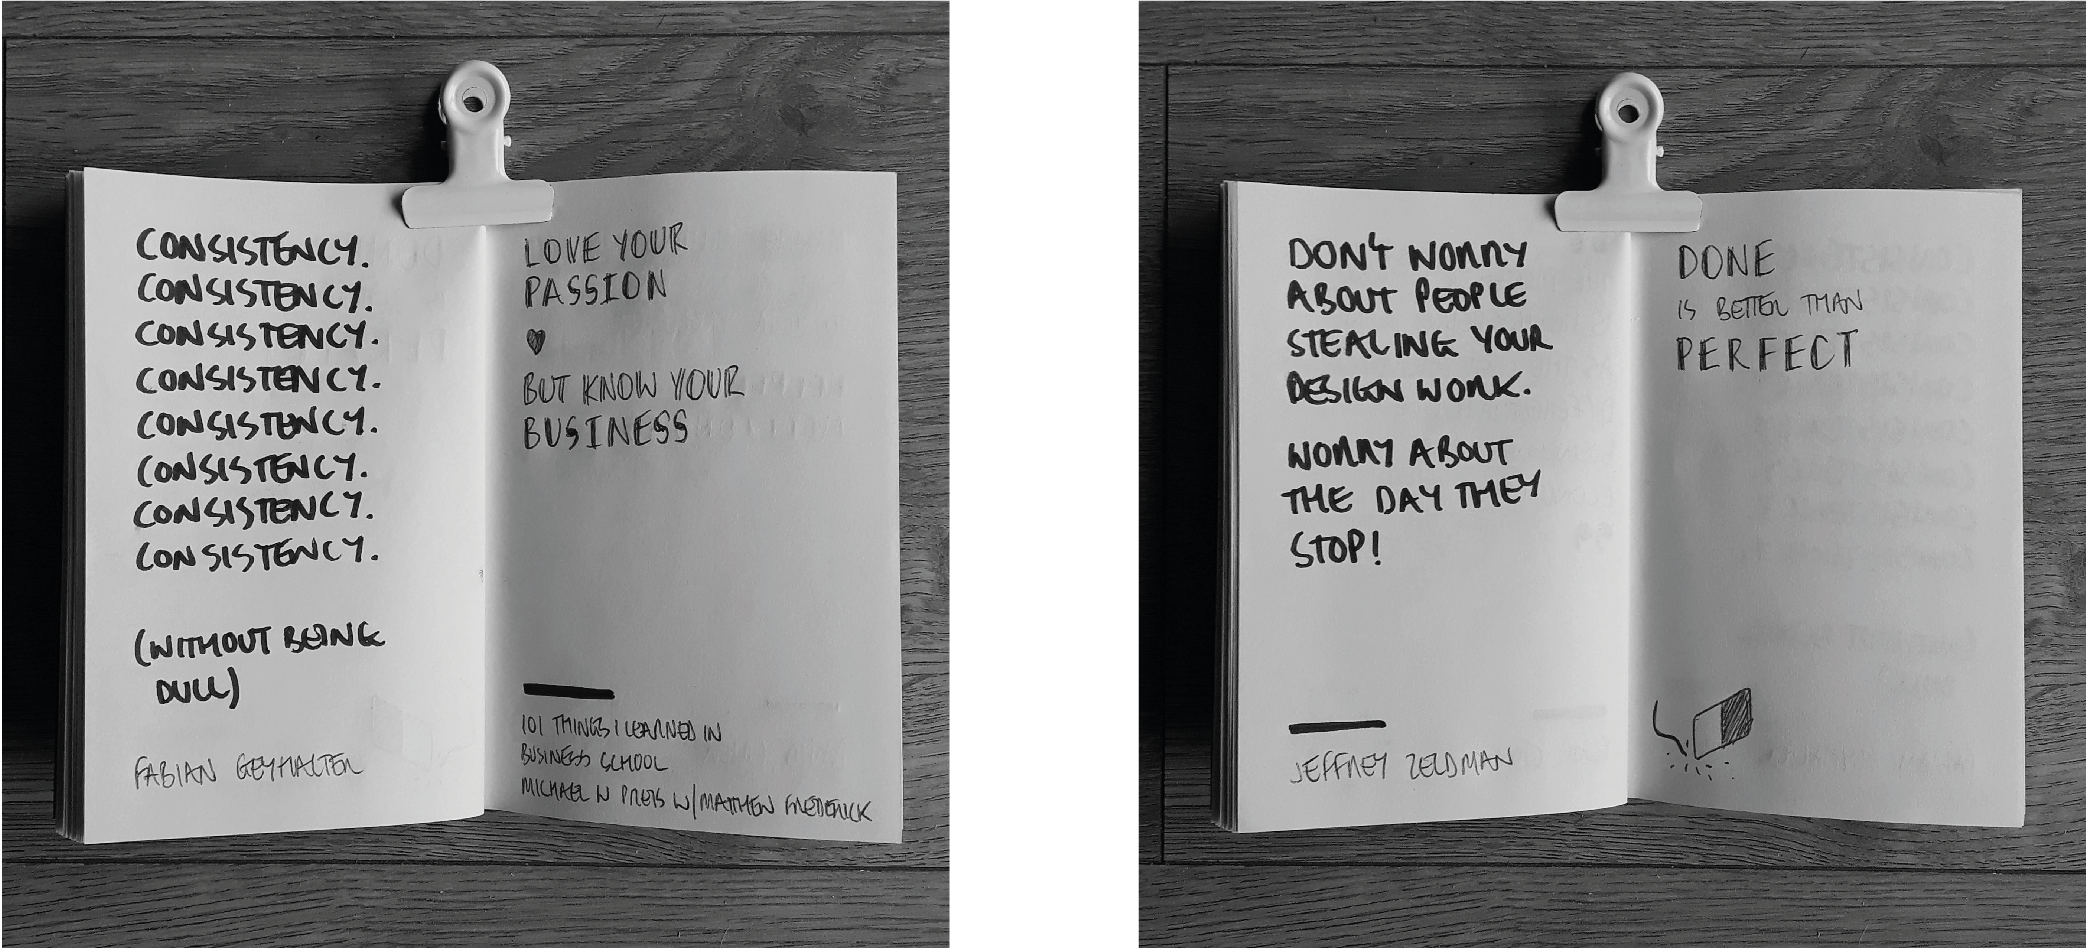 CONSISTENCY.
CONSISTENCY.
CONSISTENCY.
CONSISTENCY.
CONSISTENCY.
CONSISTENCY.
CONSISTENCY.
CONSISTENCY.
(WITHOUT BEING
DULL)
FABIAN GEYRHALTER
LOVE YOUR
PASSION
♥
BUT KNOW YOUR
BUSINESS
101 THINGS I LEARNED IN
BUSINESS SCHOOL
MICHAEL W PREIS W/MATTHEW FREDERICK
DON'T WORRY
ABOUT PEOPLE
STEALING YOUR
DESIGN WORK.
WORRY ABOUT
THE DAY THEY
STOP!
JEFFREY ZELDMAN
DONE
IS BETTER THAN
PERFECT